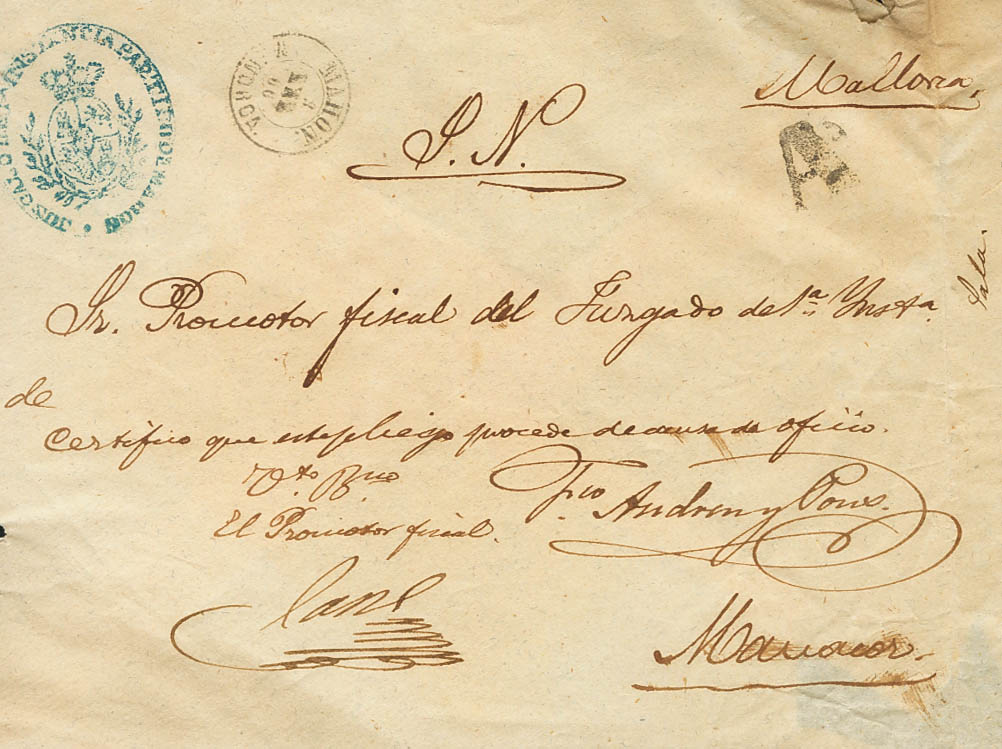 JUZGADO DE 1A INSTANCIA PARTIDO DE MAHON
MAHON
ENE
Mallorca,
S. N.
A
Sala.
Sr. Promotor fiscal del Juzgado de 1a. Ynsta.
de
Certifico que este pliego procede de causa de oficio.
Vto. Bno
El Promotor fiscal.
Fco Andreu y Pons.
Manacor.